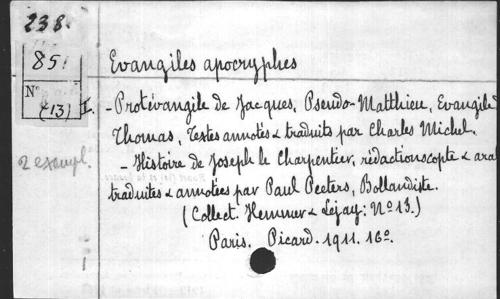 238.
85
Nº
(13)
2 exempl.
Evangiles apocryphes
I. - Protévangile de Jacques, Pseudo-Matthieu, Evangile
Thomas, Textes annotés & traduits par Charles Michel.
- Histoire de Joseph le Charpentier, rédactions copte & arab
traduites & annotées par Paul Peeters, Bollandiste.
(Collect. Hemmer & Lejay: Nº 13.)
Paris. Picard. 1911. 16º.